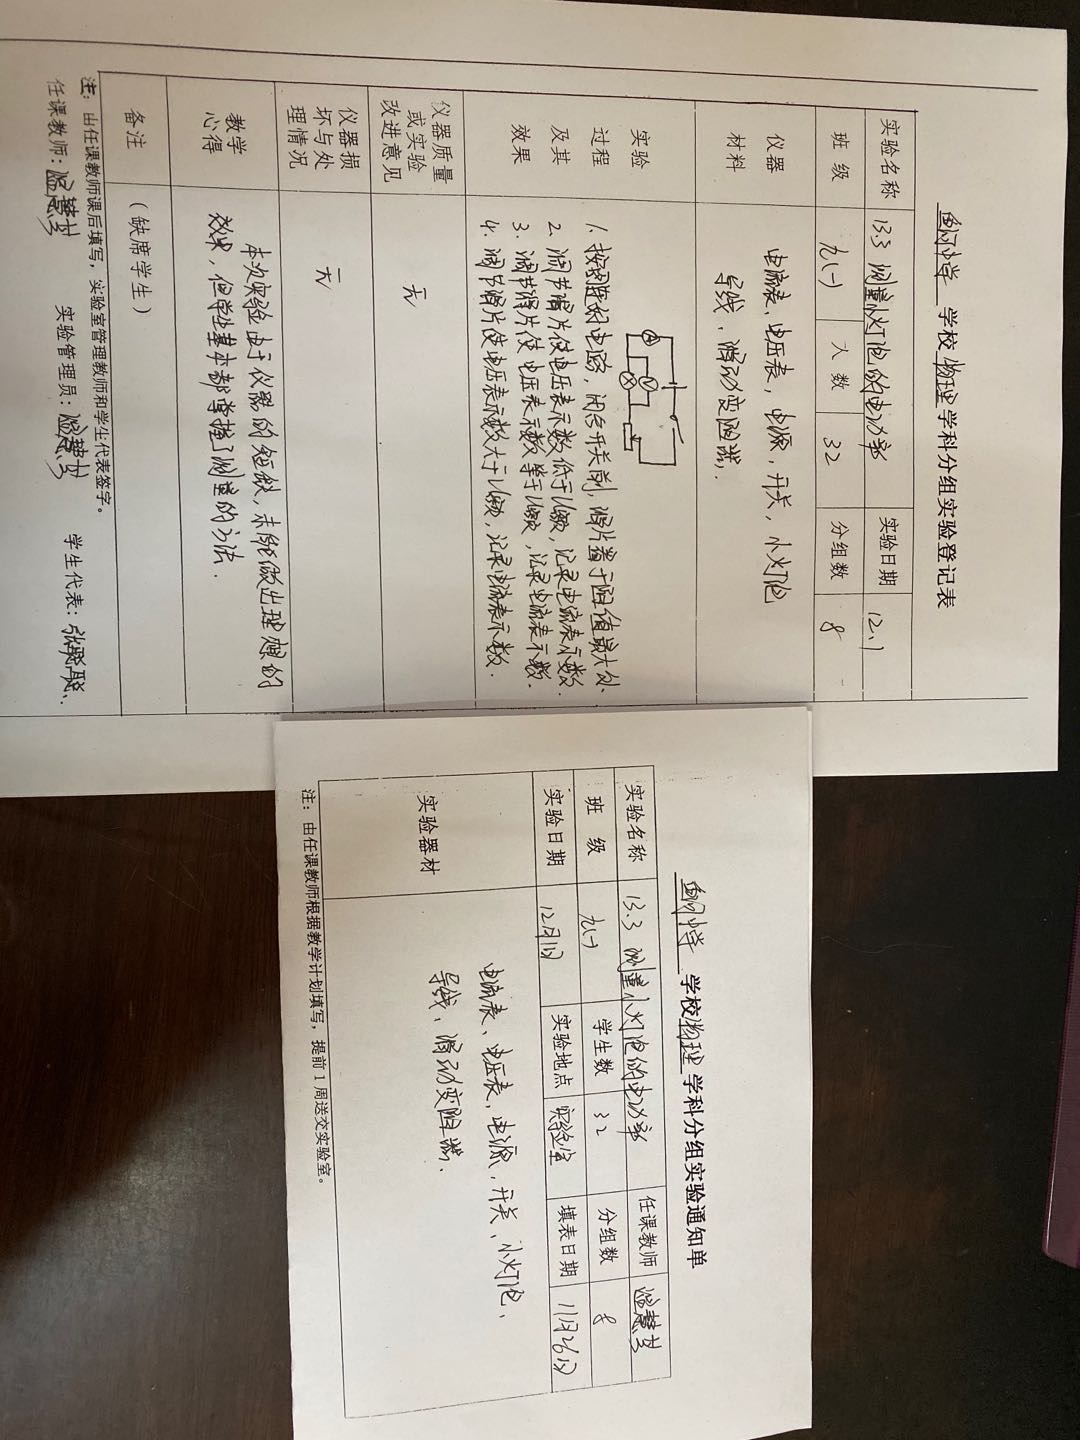 学校物理学科分组实验登记表
实验名称 13.3 测量小灯泡的电功率 实验日期 12.1
班 级 九(一) 人 数 32 分组数 8
仪器
材料
电流表、电压表、电源、开关、小灯泡
导线、滑动变阻器、
实验
过程
及其
效果
A
V
1. 按图连好电路,闭合开关前,滑片置于阻值最大处.
2. 调节滑片使电压表示数低于U额,记录电流表示数.
3. 调节滑片使电压表示数等于U额,记录电流表示数.
4. 调节滑片使电压表示数大于U额,记录电流表示数.
仪器质量
或实验
改进意见
无
仪器损
坏与处
理情况
无
教学
心得
本次实验由于仪器的短缺,未能做出理想的
效果,但学生基本都掌握了测量的方法.
备注
(缺席学生)
注:由任课教师课后填写,实验室管理教师和学生代表签字。
任课教师: 实验管理员: 学生代表:
学校物理学科分组实验通知单
实验名称 13.3 测量小灯泡的电功率 任课教师
班 级 九(一) 学生数 32 分组数 8
实验日期 12月1日 实验地点 实验室 填表日期 11月26日
实验器材
电流表、电压表、电源、开关、小灯泡、
导线、滑动变阻器.
注:由任课教师根据教学计划填写,提前1周送交实验室。